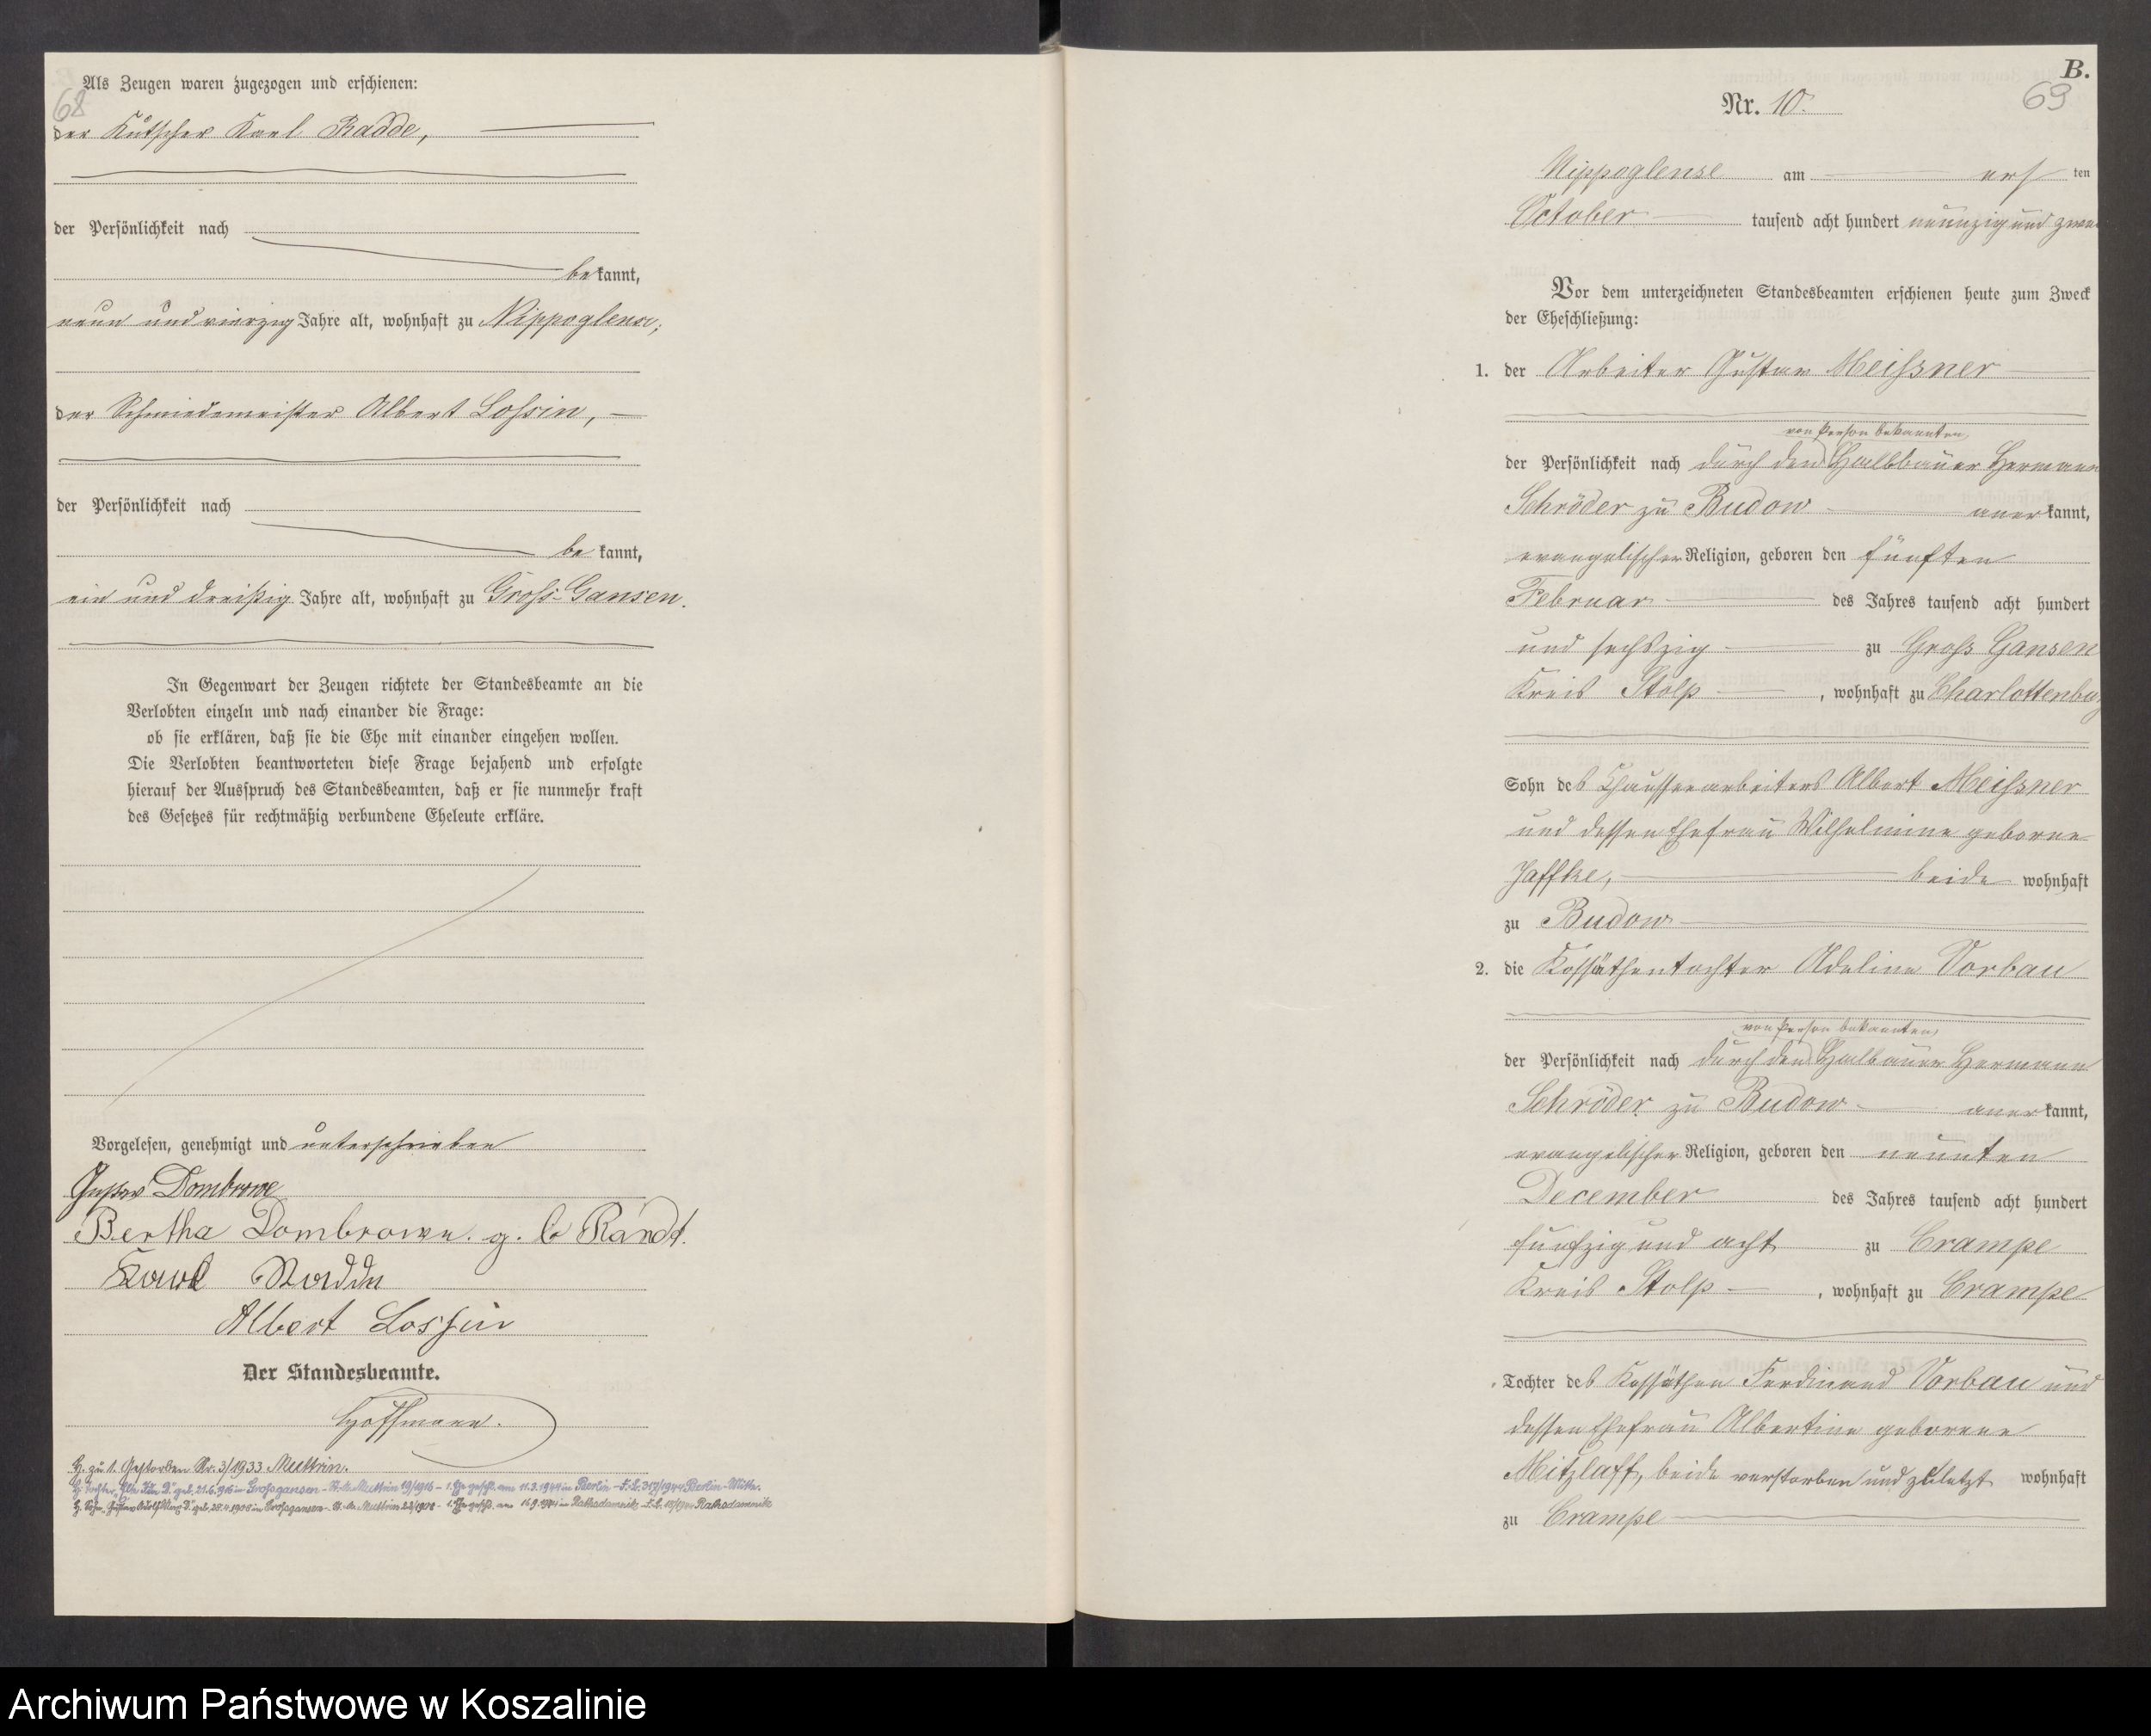 Als Zeugen waren zugezogen und erschienen:
68
der Kutscher Karl Radde,
der Persönlichkeit nach
bekannt,
neun und vierzig Jahre alt, wohnhaft zu Nippoglense;
der Schmiedemeister Albert Lossin,
der Persönlichkeit nach
be kannt,
ein und dreißig Jahre alt, wohnhaft zu Gross-Gansen.
In Gegenwart der Zeugen richtete der Standesbeamte an die
Verlobten einzeln und nach einander die Frage:
ob sie erklären, daß sie die Ehe mit einander eingehen wollen.
Die Verlobten beantworteten diese Frage bejahend und erfolgte
hierauf der Ausspruch des Standesbeamten, daß er sie nunmehr kraft
des Gesetzes für rechtmäßig verbundene Eheleute erkläre.
Vorgelesen, genehmigt und unterschrieben
Gustav Dombrowe
Bertha Dombrowe. g. b Randt.
Karl Radde
Albert Lossin
Der Standesbeamte.
Hoffmann.
H. zu 1. Gestorben Nr. 3/1933 Muttrin.
B.
69
Nr. 10.
Nippoglense am ersten
October tausend acht hundert neunzig und zwei
Vor dem unterzeichneten Standesbeamten erschienen heute zum Zweck
der Eheschließung:
1. der Arbeiter Gustav Meißsner
von Person bekannten
der Persönlichkeit nach durch den Halbbauer Hermann
Schröder zu Budow anerkannt,
evangelischer Religion, geboren den fünften
Februar des Jahres tausend acht hundert
und sechszig zu Gross Gansen
Kreis Stolp, wohnhaft zu Charlottenburg
Sohn des Chausseearbeiters Albert Meißsner
und dessen Ehefrau Wilhelmine geborne
Jaffke, beide wohnhaft
zu Budow
2. die Kossäthentochter Adeline Vorbau
von Person bekannten
der Persönlichkeit nach durch den Halbauer Hermann
Schröder zu Budow anerkannt,
evangelischer Religion, geboren den neunten
December des Jahres tausend acht hundert
fünfzig und acht zu Crampe
Kreis Stolp, wohnhaft zu Crampe
Tochter des Kossäthen Ferdinand Vorbau und
dessen Ehefrau Albertine geborene
Mitzlaff, beide verstorben und zuletzt wohnhaft
zu Crampe
Archiwum Państwowe w Koszalinie